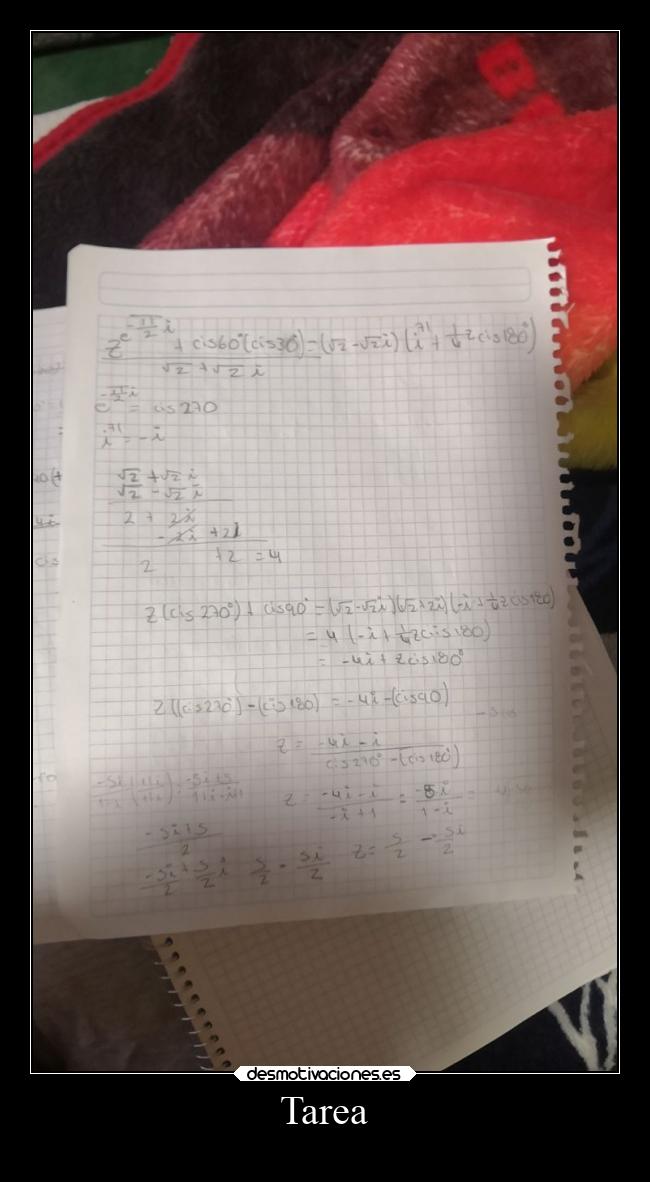 z e^(-π/2 i) + cis60°(cis30°) = (√2 - √2 i) (i^71 + 1/4 z cis180°)
√2 + √2 i
e^(-π/2 i) = cis 270
i^71 = -i
√2 + √2 i
√2 - √2 i
2 + 2i
- 2i + 2i
2 + 2 = 4
z (cis 270°) + cis 90° = (√2 - √2 i) (√2 + 2i) (-i + 1/4 z cis 180)
= 4 (-i + 1/4 z cis 180)
= -4i + z cis 180°
z ((cis 270°) - (cis 180) = -4i - (cis 90)
z = -4i - i / cis 270° - (cis 180°)
z = -4i - i / -i + 1 = -5i / 1 - i =
-5i + 5 / 2
-5i / 2 + 5 / 2 i 5 / 2 - 5i / 2 z = 5 / 2 - 5i / 2
desmotivaciones.es
Tarea